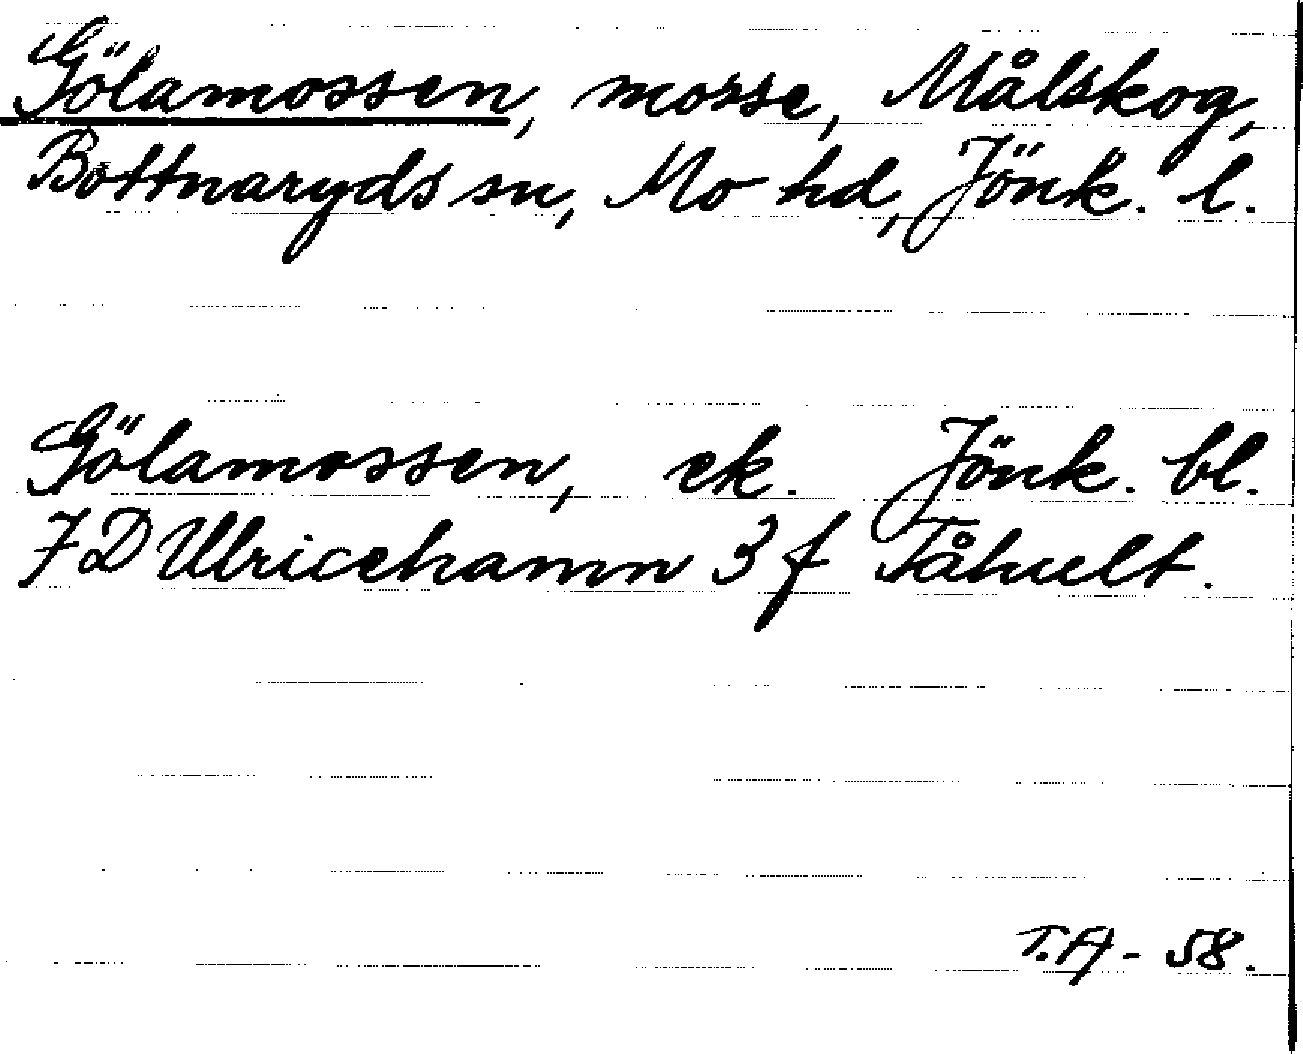 Gölamossen, mosse, Målskog,
Bottnaryds sn, Mo hd, Jönk. l.
Gölamossen, ek. Jönk. bl.
7D Ulricehamn 3 f Tåhult.
T.A - 58.